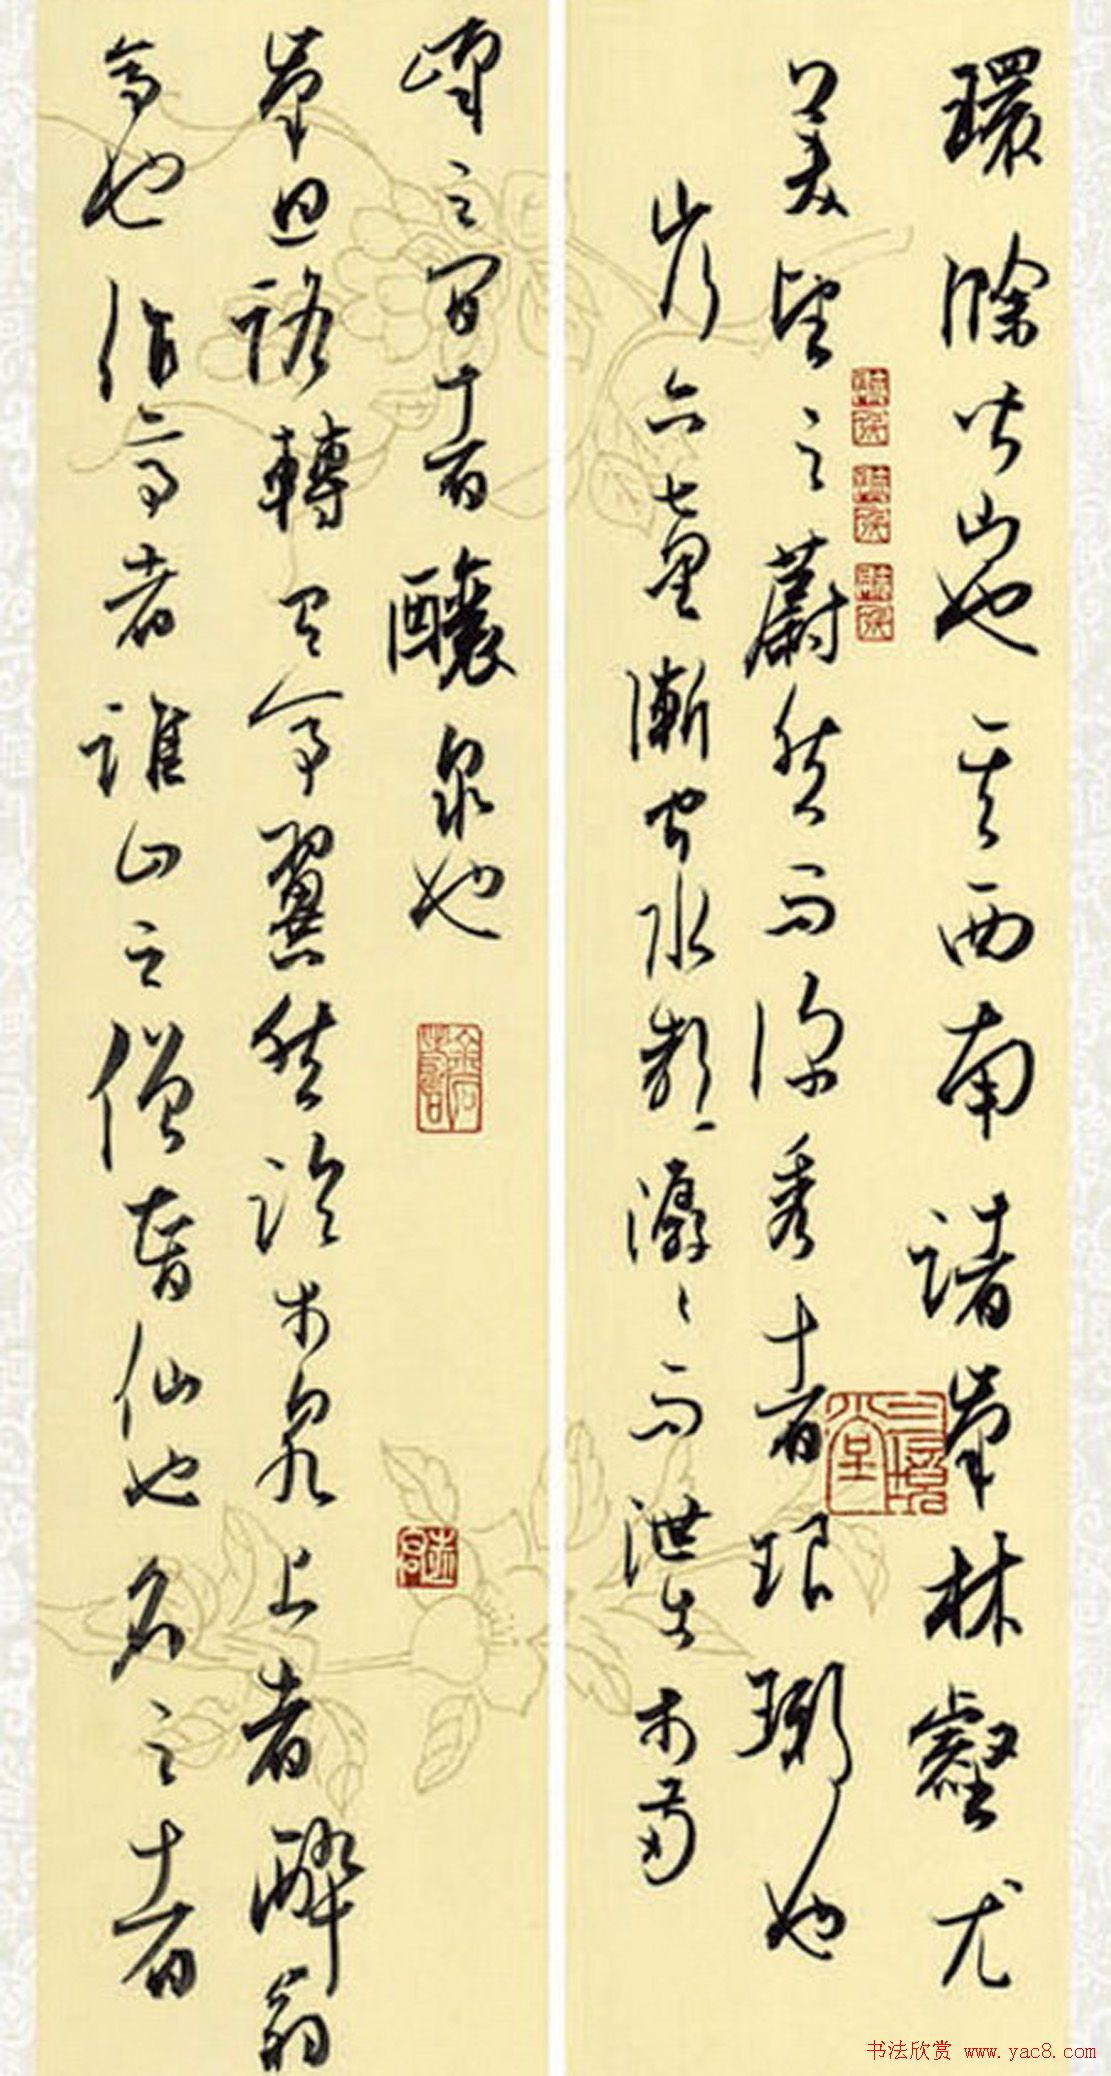 環滁皆山也其西南諸峯林壑尤
美望之蔚然而深秀者琅琊也
山行六七里漸聞水聲潺〻而泄出於兩
峰之間者釀泉也
峯回路轉有亭翼然臨於泉上者醉翁
亭也作亭者誰山之僧智仙也名之者
书法欣赏 www.yac8.com